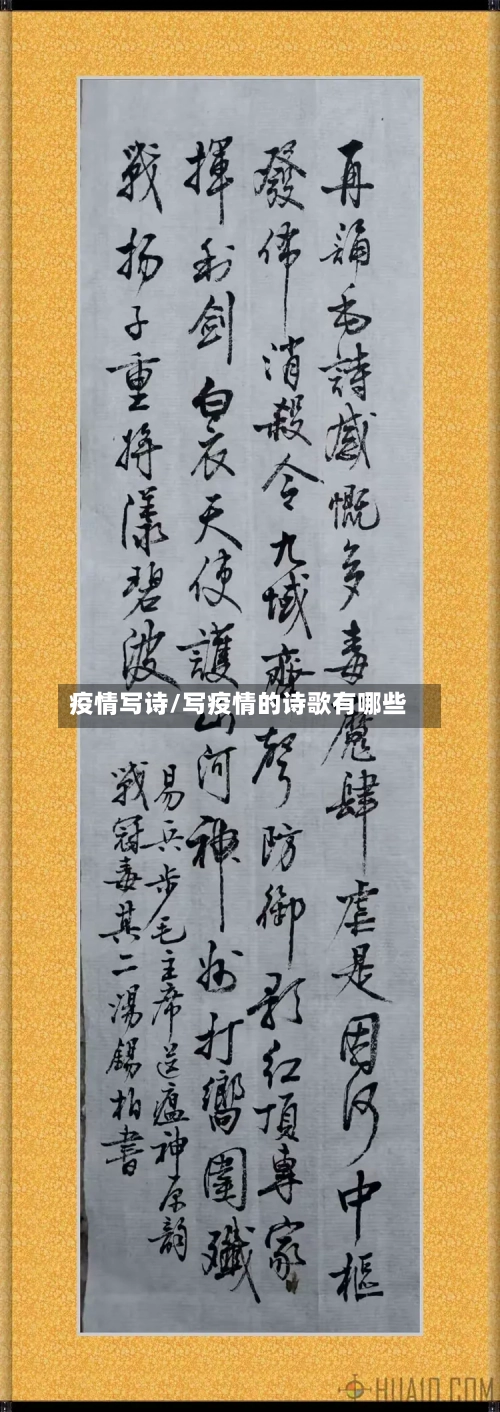 再誦毛詩感慨多毒魔肆虐是因何中樞
發佈消殺令九域齊聲防御歌红頂專家
揮利剑白衣天使護山河神州打嚮圍殲
戰扬子重將漾碧波
易兵步毛主席送瘟神原韵
戰冠毒其二湯錫柏書
疫情写诗/写疫情的诗歌有哪些
HUA10.COM